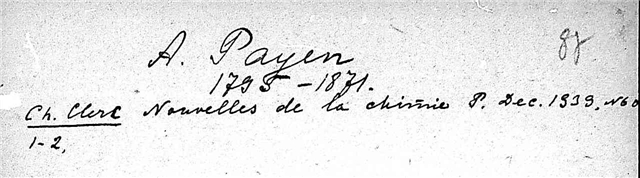 A. Payen
1795-1871.
Ch. Clerc Nouvelles de la chimie P. Dec. 1939, N60
1-2,